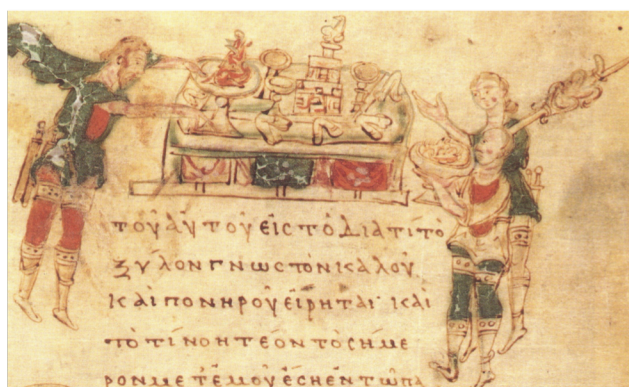 τοῦ αὐτοῦ εἰς τὸ διατί τὸ
ξύλον γνωστὸν καλοῦ
καὶ πονηροῦ εἴρηται· καὶ
πότι νοητέον τὸ σήμε
ρον μετ ἐμοῦ ἔσῃ ἐν τῷ πα